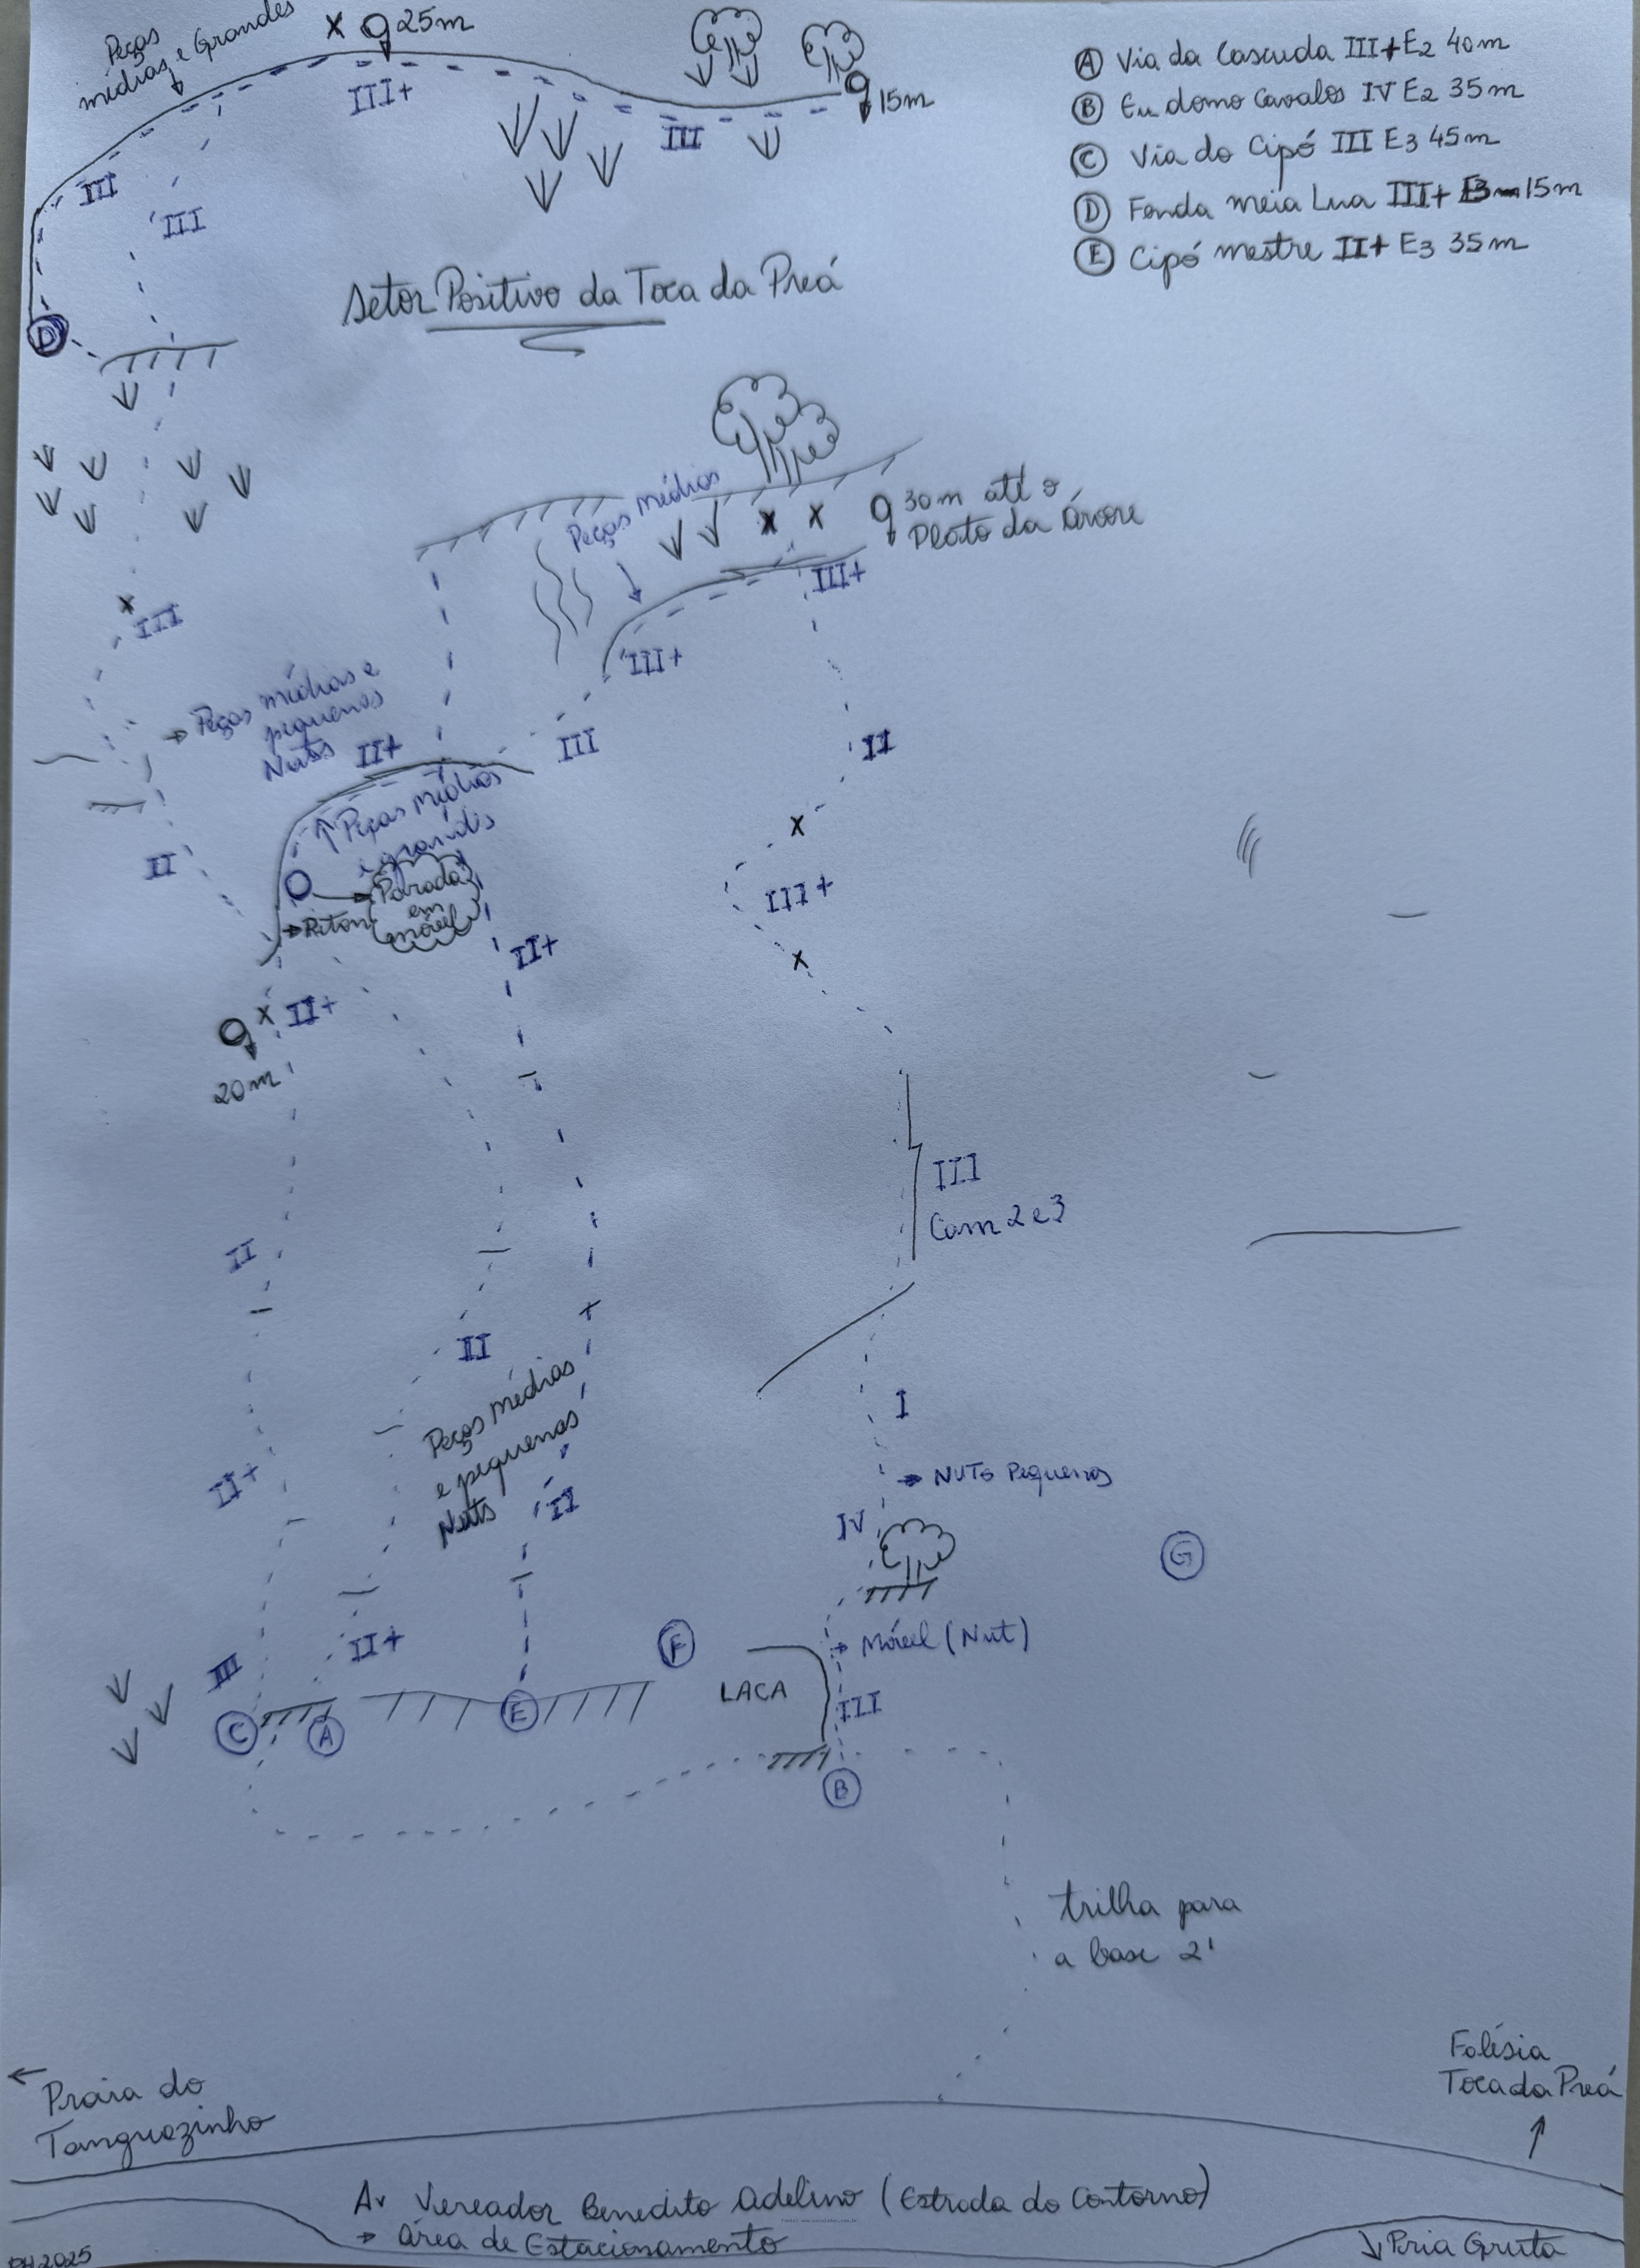 Peças
médias e Grandes
25m
15m
III+
III
III
III
D
A Via da Cascuda III+ E2 40m
B Eu domo Cavalos IV E2 35m
C Via do Cipó III E3 45m
D Fenda meia Lua III+ 15m
E Cipó mestre II+ E3 35m
Setor Positivo da Toca da Preá
Peças médias
30m até o
Plato da Árvore
III+
III+
III
Peças médias e
pequenas
Nuts
II+
III
II
Peças médias
e grandes
II
III+
Parada
em
móvel
Piton
II+
II+
20m
III
Cam 2 e 3
II
II
I
Peças médias
e pequenas
Nuts
II+
II
NUTS Pequenos
IV
G
Móvel (Nut)
F
LACA
III
II+
III
C
A
E
B
trilha para
a base 2'
Falésia
Toca da Preá
Praia do
Tanguazinho
Av Vereador Benedito Adelino (Estrada do Contorno)
Área de Estacionamento
Pria Gruta
PH 2025